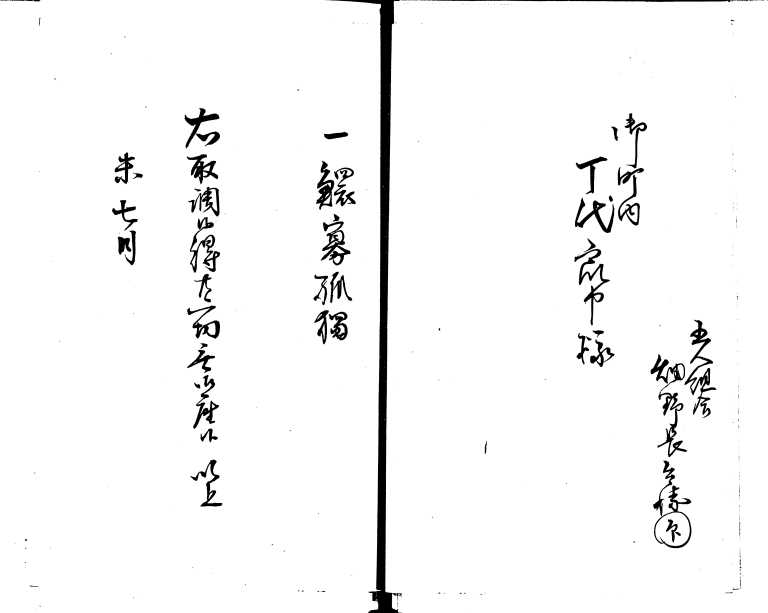 五人組合
細野長 印
御町内
丁代衆中様
一 鰥寡孤獨
右取調候得共一切無御座候 以上
未七月